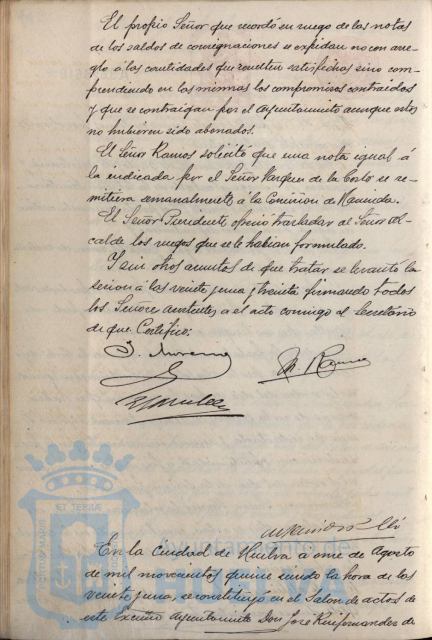 El propio Señor que recordó su ruego de las notas
de los saldos de consignaciones se expidan no con arre-
glo á las cantidades que resulten satisfechas sino com-
prendiendo en las mismas los compromisos contraidos
y que se contraigan por el Ayuntamiento aunque estos
no hubieren sido abonados.
El Señor Ramos solicitó que una nota igual á
la indicada por el Señor Vazquez de la Corte se re-
mitiera semanalmente á la Comision de Hacienda.
El Señor Presidente ofreció trasladar al Señor Al-
calde los ruegos que se le habian formulado.
Y sin otros asuntos de que tratar se levantó la
sesion á las veinte y una y treinta firmando todos
los Señores asistentes a el acto conmigo el Secretario
de que Certifico:
J. Moreno
M. Ramos
En la Ciudad de Huelva a once de Agosto
de mil novecientos quince siendo la hora de las
veinte y una, se constituyó en el Salon de actos de
este Excmo Ayuntamiento Don José Ruifernandez de
Ayuntamiento de
ET TERRAE